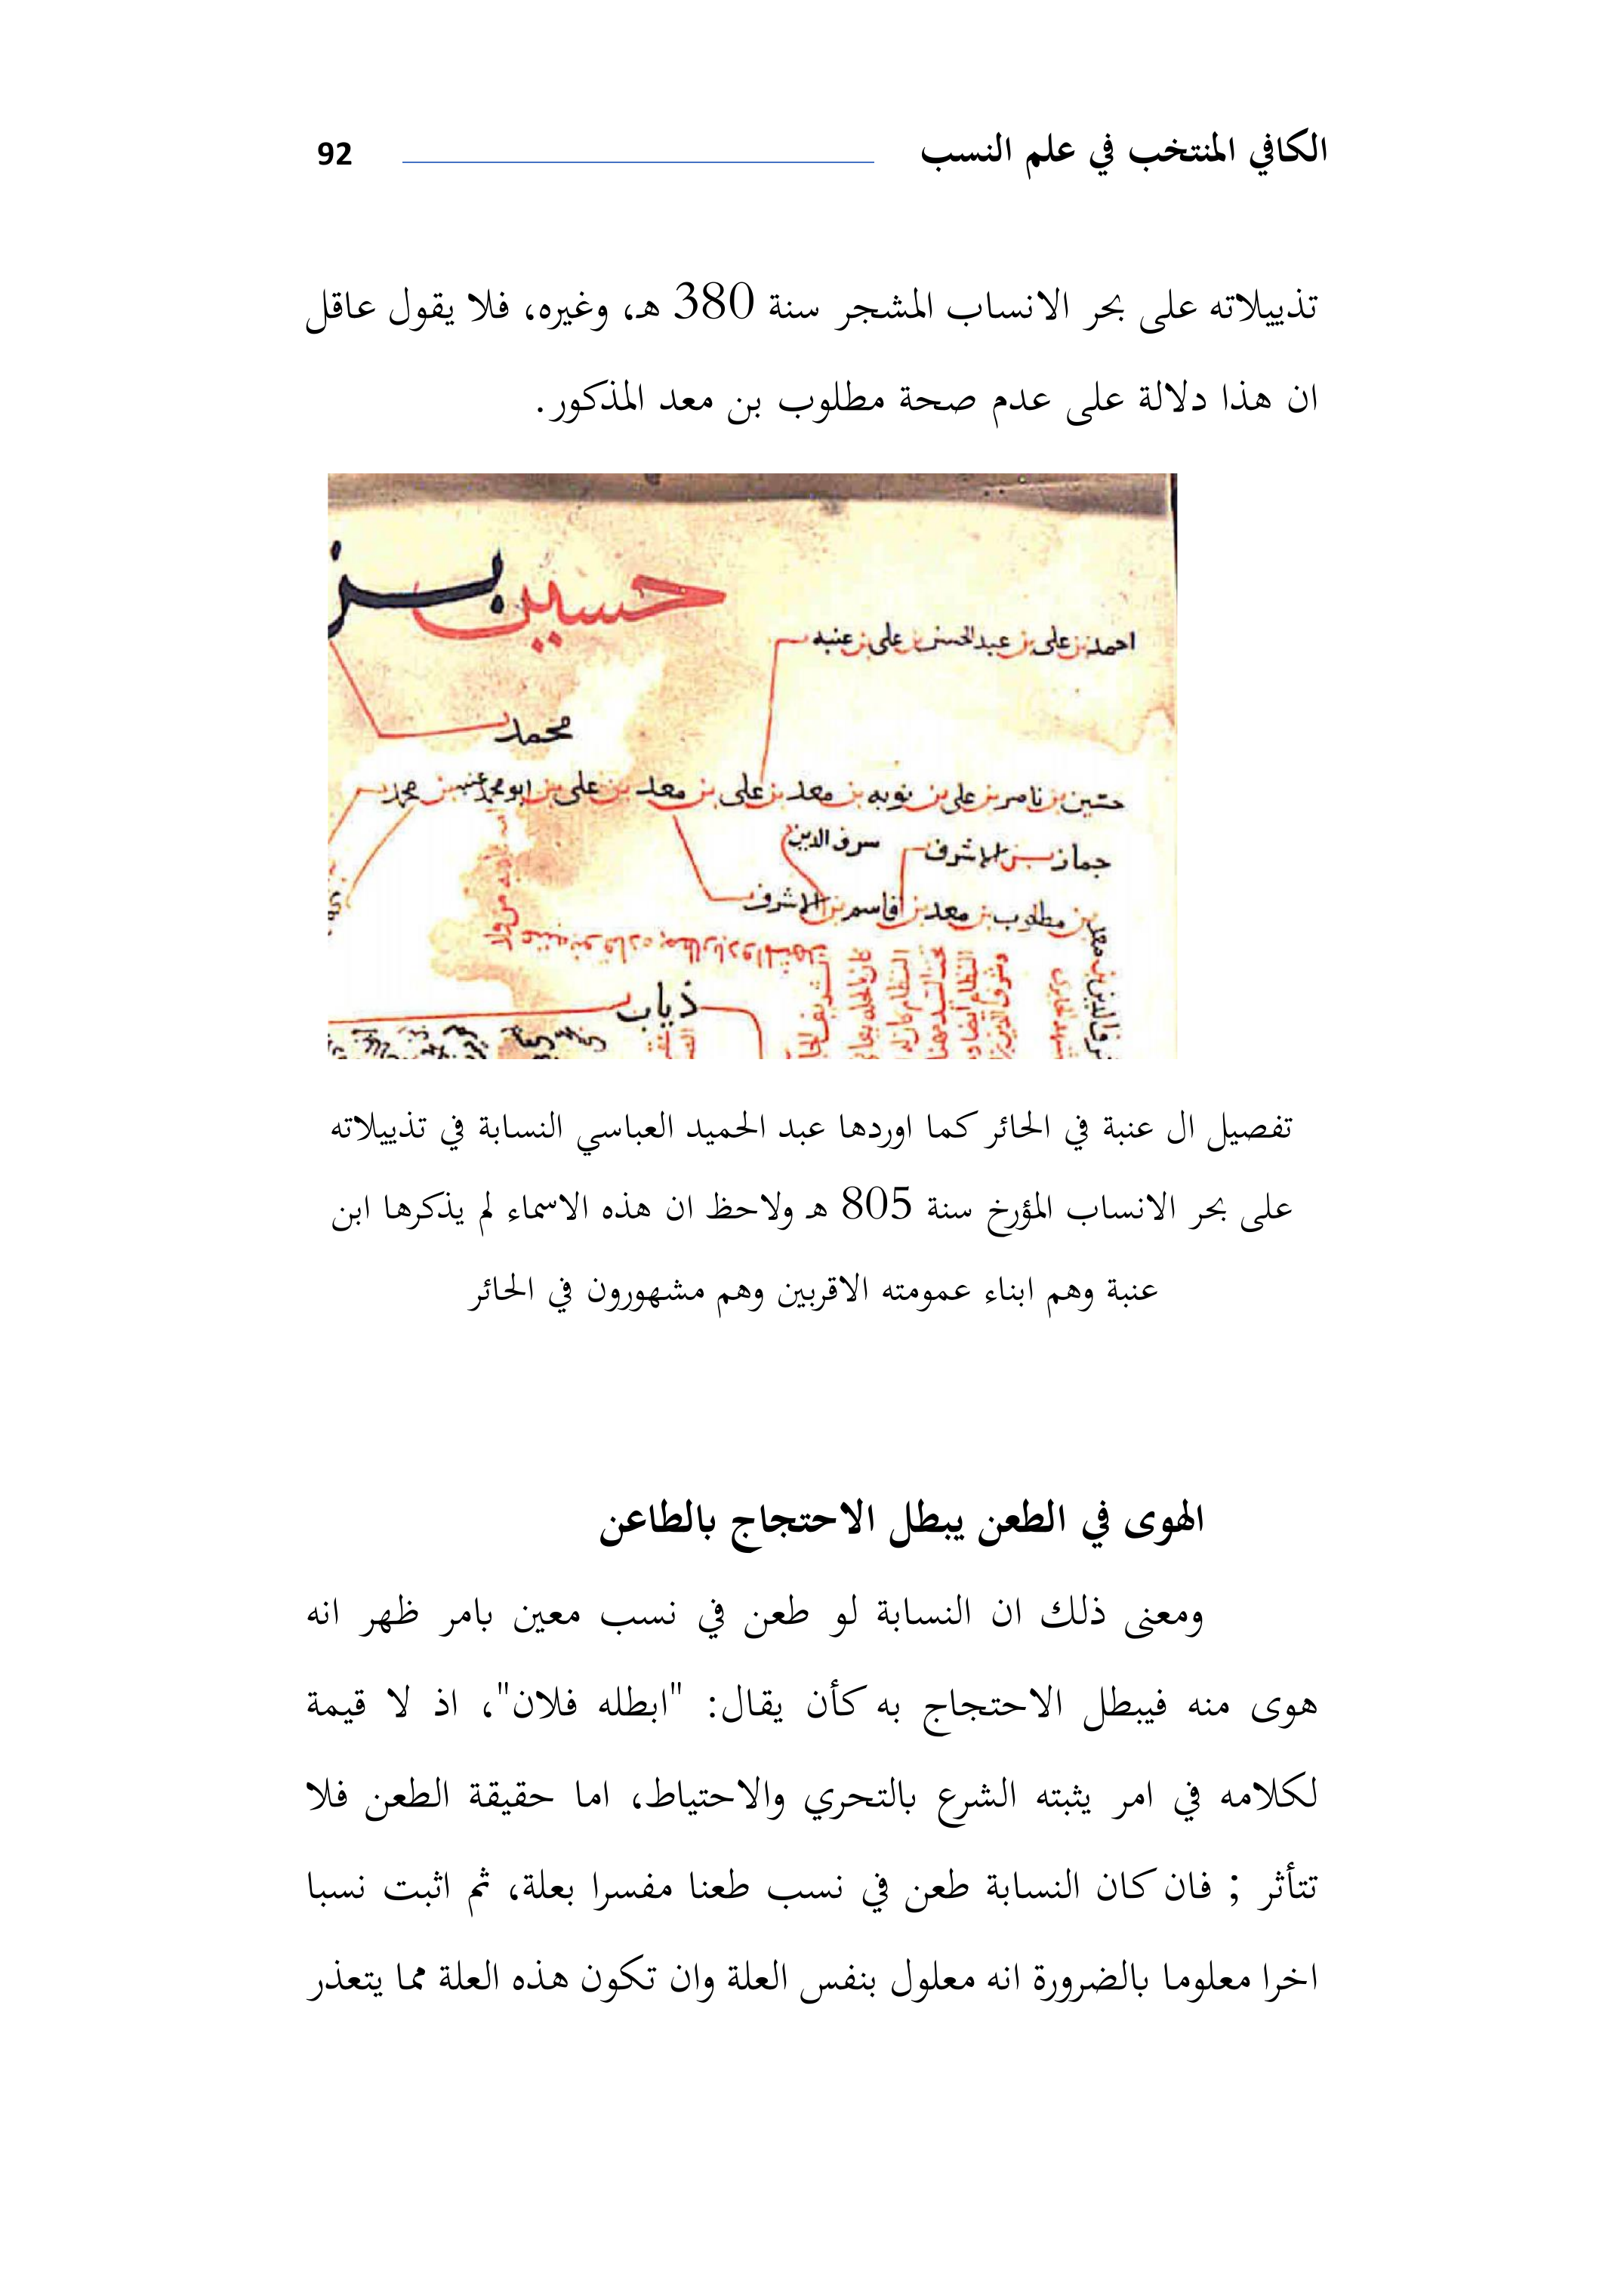 الكافي المنتخب في علم النسب 92
تذييلاته على بحر الانساب المشجر سنة 380 هـ، وغيره، فلا يقول عاقل
ان هذا دلالة على عدم صحة مطلوب بن معد المذكور.
حسين بن
احمد بن على بن عبد الحسن بن على بن عنبه
محمد
حسين بن ناصر بن على بن نويه بن معد بن على بن معد بن على بن ابو محمد عنبه بن محمد
سرف الدين
جماز بن الاشرف
بن مطلوب بن معد بن قاسم بن الاشرف
ذياب
تفصيل ال عنبة في الحائر كما اوردها عبد الحميد العباسي النسابة في تذييلاته
على بحر الانساب المؤرخ سنة 805 هـ ولاحظ ان هذه الاسماء لم يذكرها ابن
عنبة وهم ابناء عمومته الاقربين وهم مشهورون في الحائر
الهوى في الطعن يبطل الاحتجاج بالطاعن
ومعنى ذلك ان النسابة لو طعن في نسب معين بامر ظهر انه
هوى منه فيبطل الاحتجاج به كأن يقال: "ابطله فلان"، اذ لا قيمة
لكلامه في امر يثبته الشرع بالتحري والاحتياط، اما حقيقة الطعن فلا
تتأثر ; فان كان النسابة طعن في نسب طعنا مفسرا بعلة، ثم اثبت نسبا
اخرا معلوما بالضرورة انه معلول بنفس العلة وان تكون هذه العلة مما يتعذر